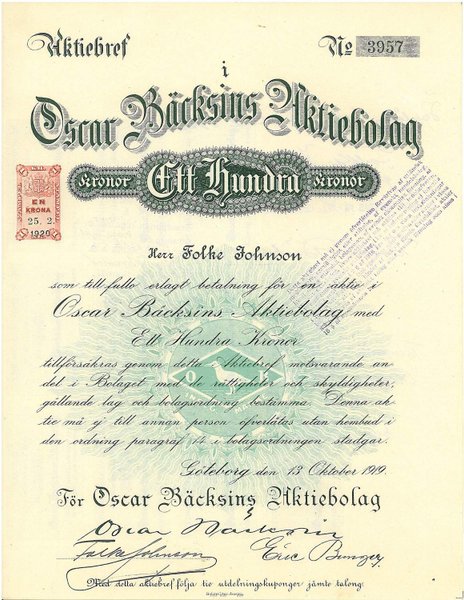 Aktiebref
No 3957
i
Oscar Bäcksins Aktiebolag
Kronor Ett Hundra Kronor
EN
KRONA
25. 2.
1920
Herr Folke Johnson
som till fullo erlagt betalning för en aktie i
Oscar Bäcksins Aktiebolag med
Ett Hundra Kronor
tillförsäkras genom detta Aktiebref motsvarande an
del i Bolaget med de rättigheter och skyldigheter,
gällande lag och bolagsordning bestämma. Denna ak
tie må ej till annan person öfverlåtas utan hembud i
den ordning paragraf 14 i bolagsordningen stadgar.
Göteborg den 13 Oktober 1919.
För Oscar Bäcksins Aktiebolag
Oscar Bäcksin
Folke Johnson
Eric
Med detta aktiebref följa tio utdelningskuponger jämte talong.